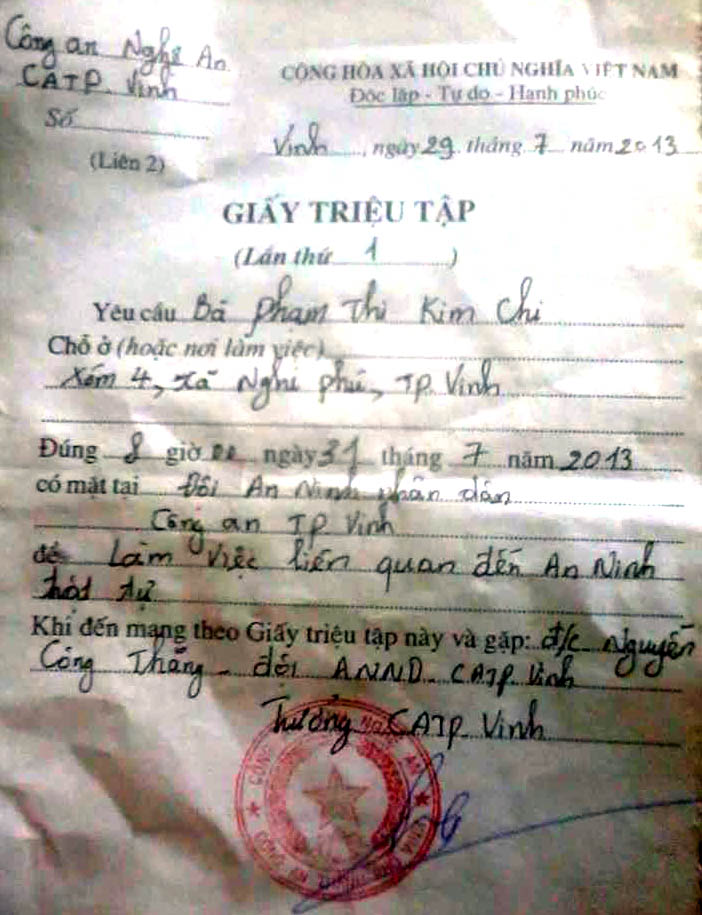 Công an Nghệ An
CATP Vinh
Số
(Liên 2)
CỘNG HÒA XÃ HỘI CHỦ NGHĨA VIỆT NAM
Độc lập - Tự do - Hạnh phúc
Vinh, ngày 29 tháng 7 năm 2013
GIẤY TRIỆU TẬP
(Lần thứ 1)
Yêu cầu Bà Phạm Thị Kim Chi
Chỗ ở (hoặc nơi làm việc)
Xóm 4, xã Nghi phú, TP Vinh
Đúng 8 giờ 00 ngày 31 tháng 7 năm 2013
có mặt tại Đội An Ninh nhân dân
Công an TP Vinh
để Làm việc liên quan đến An Ninh
trật tự
Khi đến mạng theo Giấy triệu tập này và gặp: đ/c Nguyễn
Công Thắng - đội ANND - CATP Vinh
Trưởng CATP Vinh